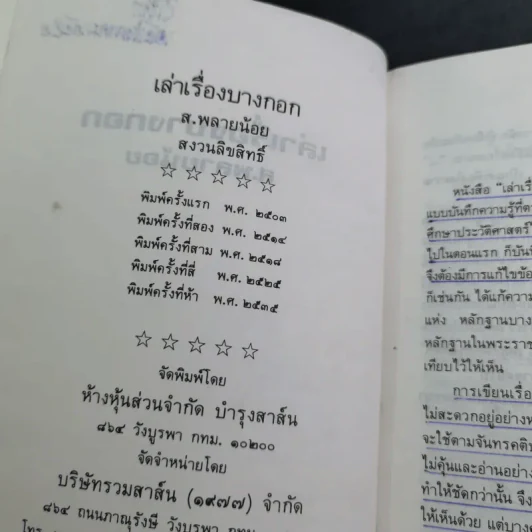 เล่าเรื่องบางกอก
ส.พลายน้อย
สงวนลิขสิทธิ์
☆ ☆ ☆ ☆ ☆
พิมพ์ครั้งแรก พ.ศ. ๒๕๐๓
พิมพ์ครั้งที่สอง พ.ศ. ๒๕๑๔
พิมพ์ครั้งที่สาม พ.ศ. ๒๕๑๘
พิมพ์ครั้งที่สี่ พ.ศ. ๒๕๒๕
พิมพ์ครั้งที่ห้า พ.ศ. ๒๕๓๕
☆ ☆ ☆ ☆ ☆
จัดพิมพ์โดย
ห้างหุ้นส่วนจำกัด บำรุงสาส์น
๘๖๔ วังบูรพา กทม. ๑๐๒๐๐
จัดจำหน่ายโดย
บริษัทรวมสาส์น (๑๙๗๗) จำกัด
๘๖๔ ถนนภาณุรังษี วังบูรพา กทม
โทร
หนังสือ "เล่าเรื่
แบบบันทึกความรู้ที่ต
ศึกษาประวัติศาสตร์
ไปในตอนแรก ก็บัน
จึงต้องมีการแก้ไขข้อ
ก็เช่นกัน ได้แก้ความ
แห่ง หลักฐานบาง
หลักฐานในพระราช
เทียบไว้ให้เห็น
การเขียนเรื่อ
ไม่สะดวกอยู่อย่างห
จะใช้ตามจันทรคติ
ไม่คุ้นและอ่านอย่าง
ทำให้ชัดกว่านั้น จึง
ให้เห็นด้วย แต่บาง